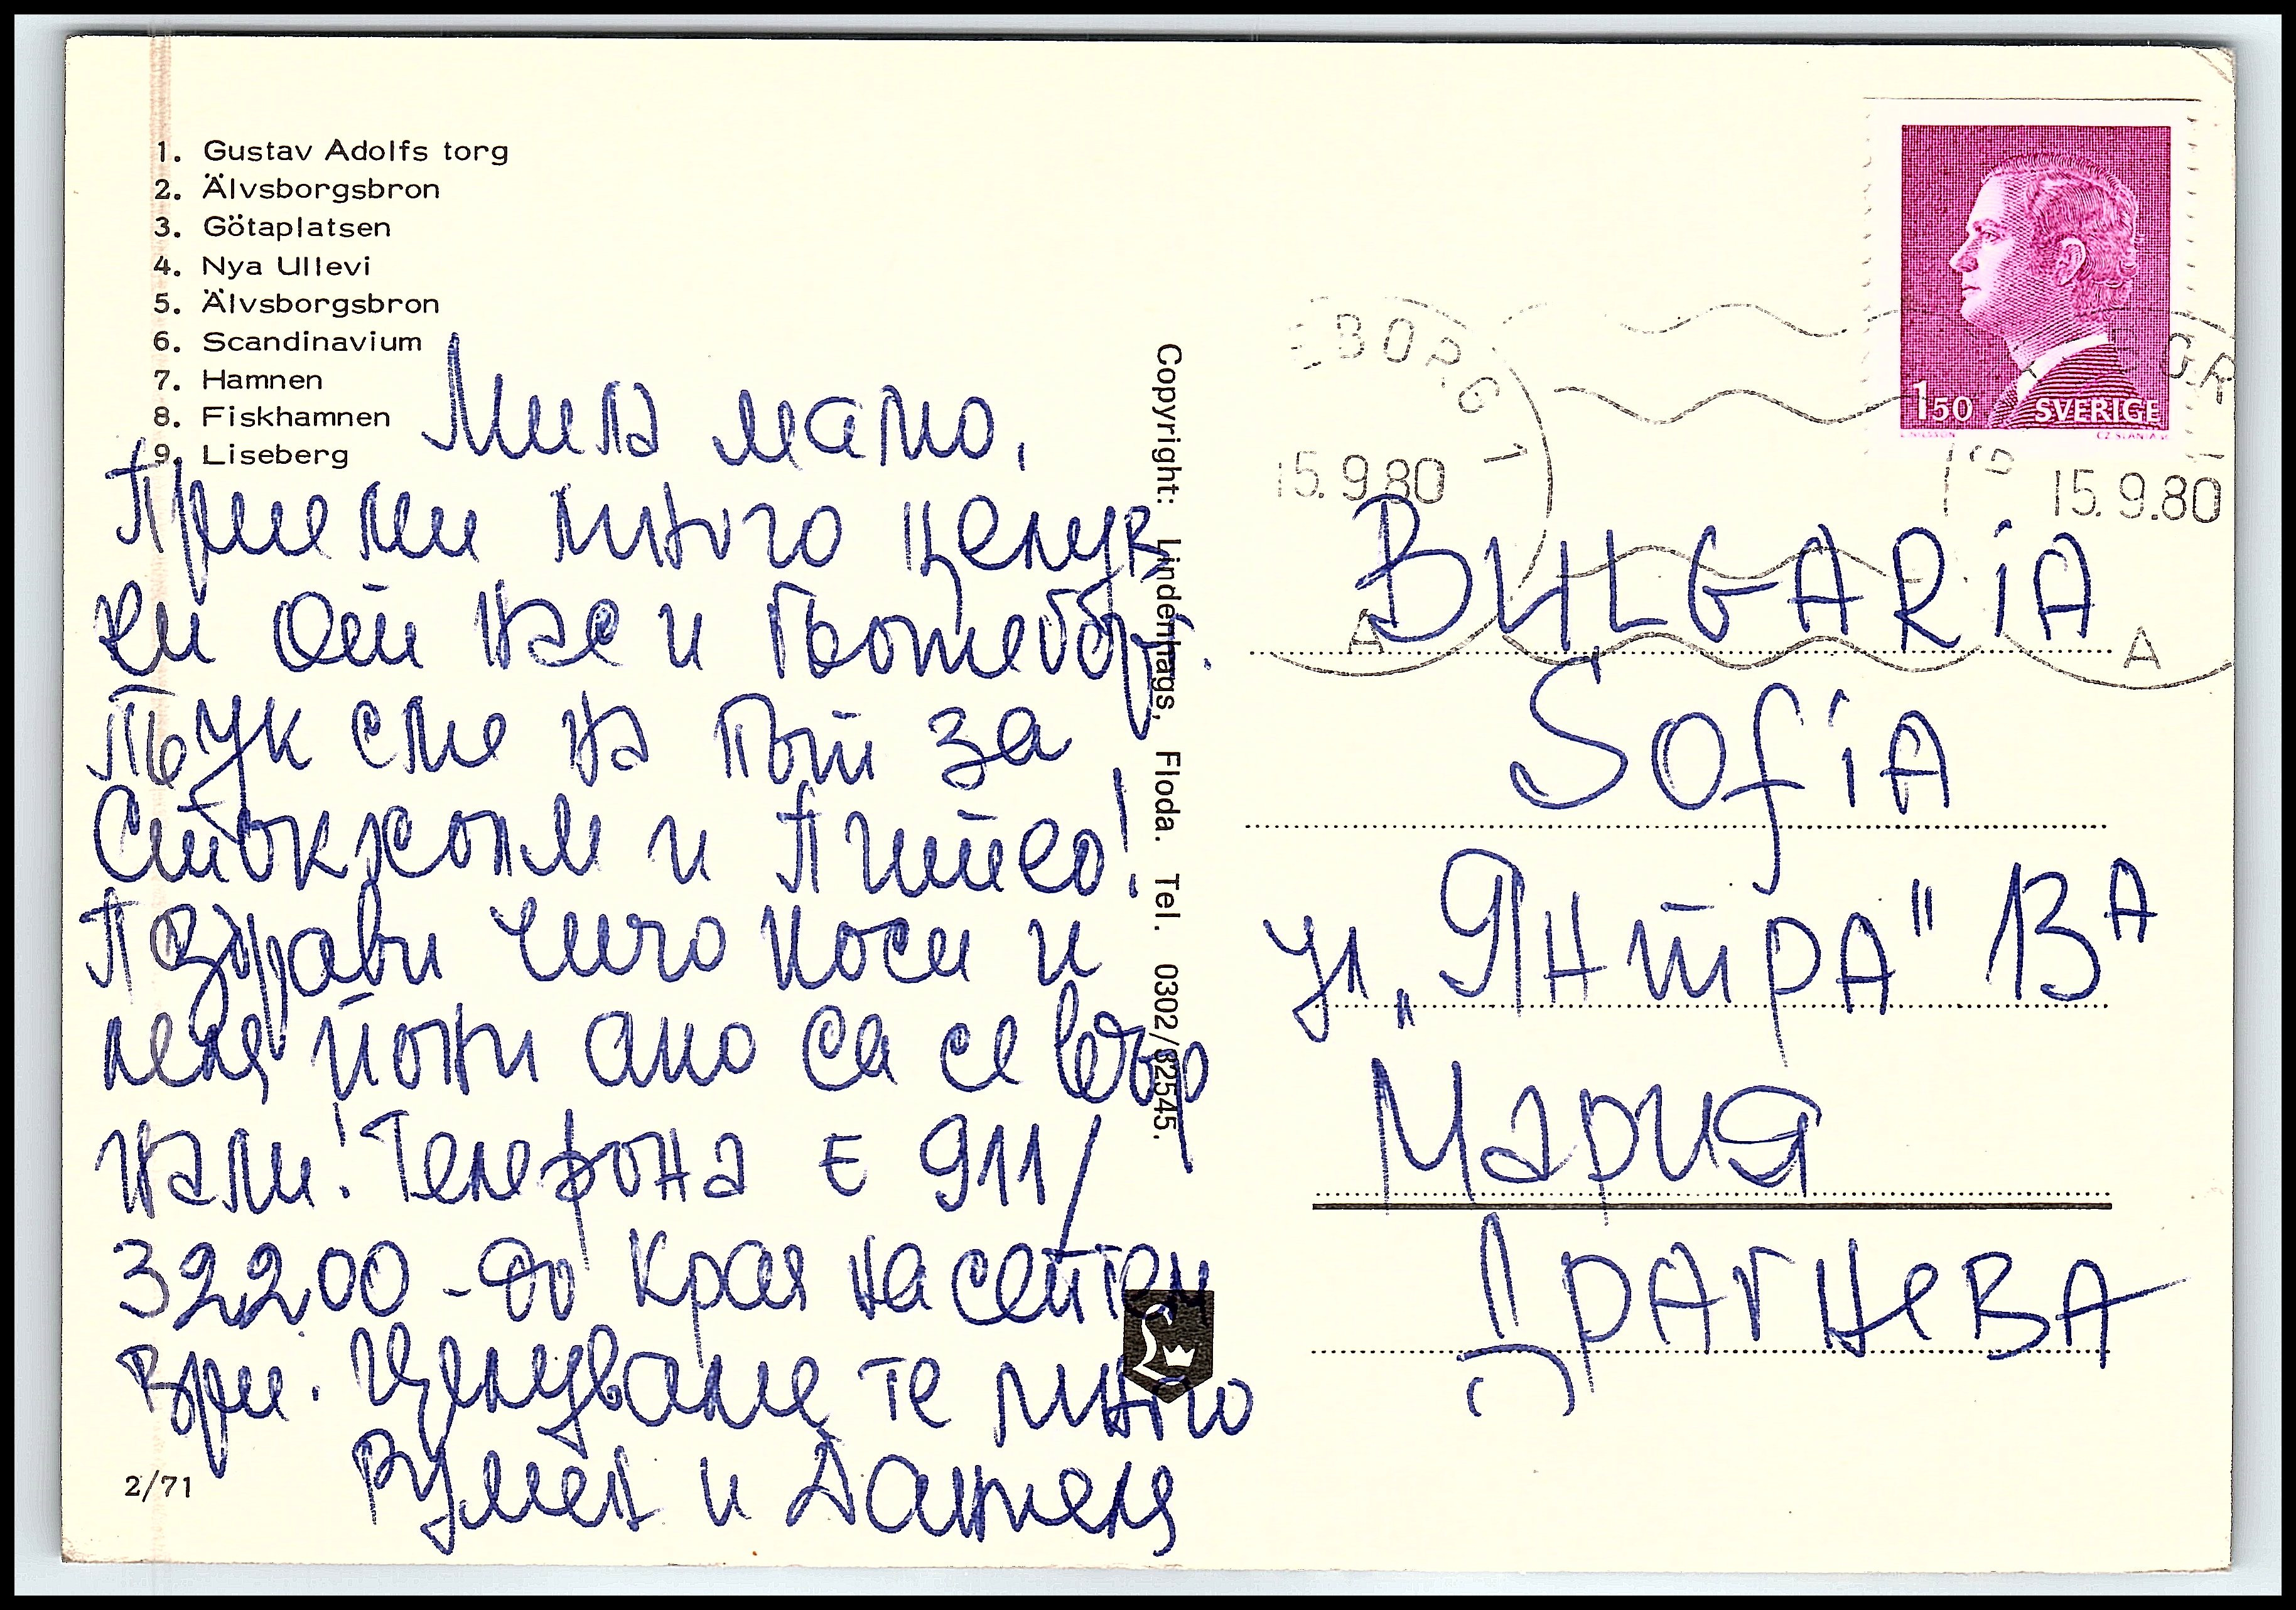 1. Gustav Adolfs torg
2. Älvsborgsbron
3. Götaplatsen
4. Nya Ullevi
5. Älvsborgsbron
6. Scandinavium
7. Hamnen
8. Fiskhamnen
9. Liseberg
Мила мамо,
Приеми много целув
ки от нас и Гьотеборг.
Тук сме на път за
Стокхолм и Питео!
Поздрави чичо Коси и
леля Йони ако са се вър
нали! Телефона е 911/
32200 - до края на септем
ври. Целуваме те много
Румен и Даниела
2/71
Copyright: Lindenhags, Floda. Tel. 0302/82545.
1 50 SVERIGE
EBORG 1
15.9.80
A
15.9.80
A
BULGARiA
SofiA
ул. „Янтра" 13 А
Мария
Драгнева